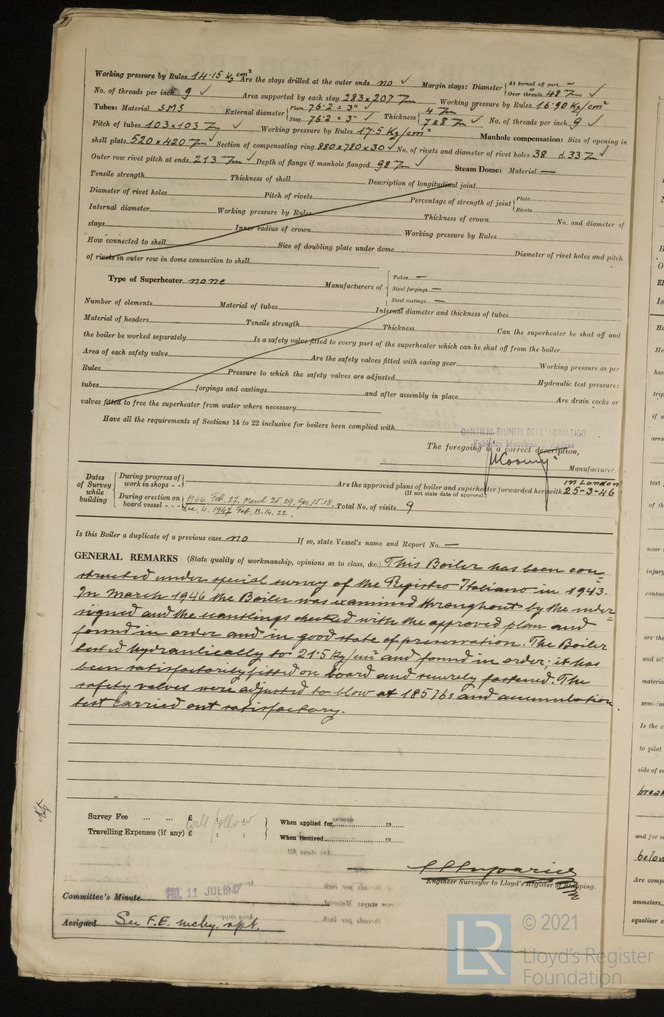 Working pressure by Rules 14.15 Kg/cm² Are the stays drilled at the outer ends no ✓ Margin stays: Diameter { At turned off part, — or Over threads 48 mm ✓
No. of threads per inch 9 ✓ Area supported by each stay 283 x 207 mm Working pressure by Rules 16.90 Kg/cm²
Tubes: Material SMS External diameter { Plain 76.2 = 3" ✓ Stay 76.2 = 3" ✓ Thickness { 4 mm 7.28 mm ✓ No. of threads per inch 9 ✓
Pitch of tubes 103 x 103 mm ✓ Working pressure by Rules 17.5 Kg/cm² Manhole compensation: Size of opening in
shell plate 520 x 420 mm ✓ Section of compensating ring 880 x 780 x 30 ✓ No. of rivets and diameter of rivet holes 38 d. 33 mm ✓
Outer row rivet pitch at ends 213 mm ✓ Depth of flange if manhole flanged 98 mm ✓ Steam Dome: Material —
Tensile strength Thickness of shell Description of longitudinal joint
Diameter of rivet holes Pitch of rivets Percentage of strength of joint { Plate Rivets
Internal diameter Working pressure by Rules Thickness of crown No. and diameter of
stays Inner radius of crown Working pressure by Rules
How connected to shell Size of doubling plate under dome Diameter of rivet holes and pitch
of rivets in outer row in dome connection to shell
Type of Superheater none Manufacturers of { Tubes — Steel forgings — Steel castings —
Number of elements Material of tubes Internal diameter and thickness of tubes
Material of headers Tensile strength Thickness Can the superheater be shut off and
the boiler be worked separately Is a safety valve fitted to every part of the superheater which can be shut off from the boiler
Area of each safety valve Are the safety valves fitted with easing gear Working pressure as per
Rules Pressure to which the safety valves are adjusted Hydraulic test pressure:
tubes forgings and castings and after assembly in place Are drain cocks or
valves fitted to free the superheater from water where necessary
Have all the requirements of Sections 14 to 22 inclusive for boilers been complied with
CANTIERI RIUNITI DELL'ADRIATICO
The foregoing is a correct description,
Manufacturer.
Dates of Survey while building { During progress of work in shops - - During erection on board vessel - - - 1946 Feb. 27. March 25. 29. Apr. 15. 18. Dec. 4. 1947 Feb. 13. 14. 22. Total No. of visits 9
Are the approved plans of boiler and superheater forwarded herewith in London 25-3-46
(If not state date of approval.)
Is this Boiler a duplicate of a previous case no If so, state Vessel's name and Report No. —
GENERAL REMARKS (State quality of workmanship, opinions as to class, &c.) This Boiler has been con
structed under special survey of the Registro Italiano in 1943.
In March 1946 the Boiler was examined throughout by the under=
signed and the scantlings checked with the approved plan and
found in order and in good state of preservation. The Boiler
tested hydraulically to 21.5 Kg/cm² and found in order; it has
been satisfactorily fitted on board and securely fastened. The
safety valves were adjusted to blow at 185 lbs and accumulation
test carried out satisfactory.
Survey Fee ... ... £ will follow : : When applied for, 19
Travelling Expenses (if any) £ : : When received 19
Engineer Surveyor to Lloyd's Register of Shipping.
Committee's Minute FRI. 11 JUL 1947
Assigned See F.E. mchy. rpt.
LR
© 2021
Lloyd's Register
Foundation